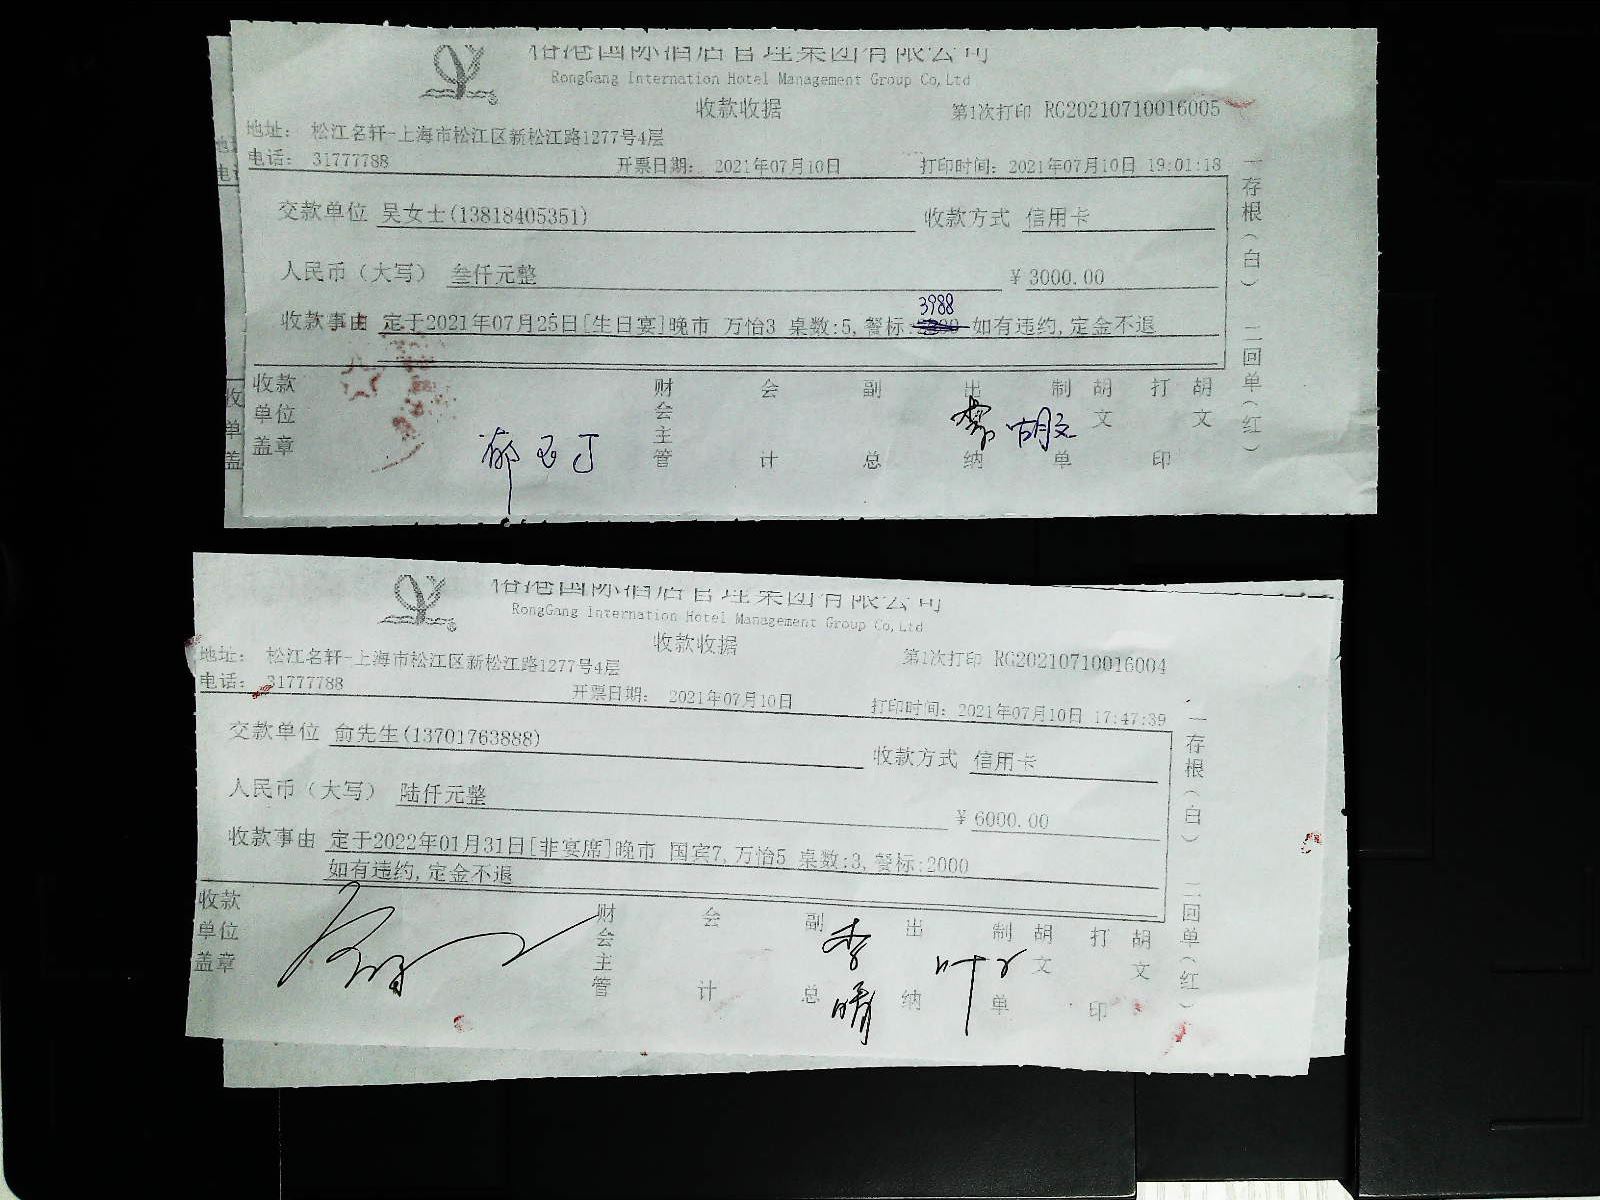 国际酒店管理集团有限公司
RongGang Internation Hotel Management Group Co,Ltd
收款收据
第1次打印 RG20210710016005
地址: 松江名轩-上海市松江区新松江路1277号4层
电话: 31777788 开票日期: 2021年07月10日 打印时间: 2021年07月10日 19:01:18
交款单位 吴女士(13818405351) 收款方式 信用卡
人民币(大写) 叁仟元整 ¥3000.00
3988
收款事由 定于2021年07月25日[生日宴]晚市 万怡3 桌数:5,餐标: 如有违约,定金不退
收款单位盖章 财会主管 会计 副总 出纳 制单 胡文 打印 胡文
胡文
一存根(白) 二回单(红)
国际酒店管理集团有限公司
RongGang Internation Hotel Management Group Co,Ltd
收款收据
第1次打印 RG20210710016004
地址: 松江名轩-上海市松江区新松江路1277号4层
电话: 31777788 开票日期: 2021年07月10日 打印时间: 2021年07月10日 17:47:39
交款单位 俞先生(13701763888) 收款方式 信用卡
人民币(大写) 陆仟元整 ¥6000.00
收款事由 定于2022年01月31日[非宴席]晚市 国宾7,万怡5 桌数:3,餐标:2000
如有违约,定金不退
收款单位盖章 财会主管 会计 副总 出纳 制单 胡文 打印 胡文
一存根(白) 二回单(红)